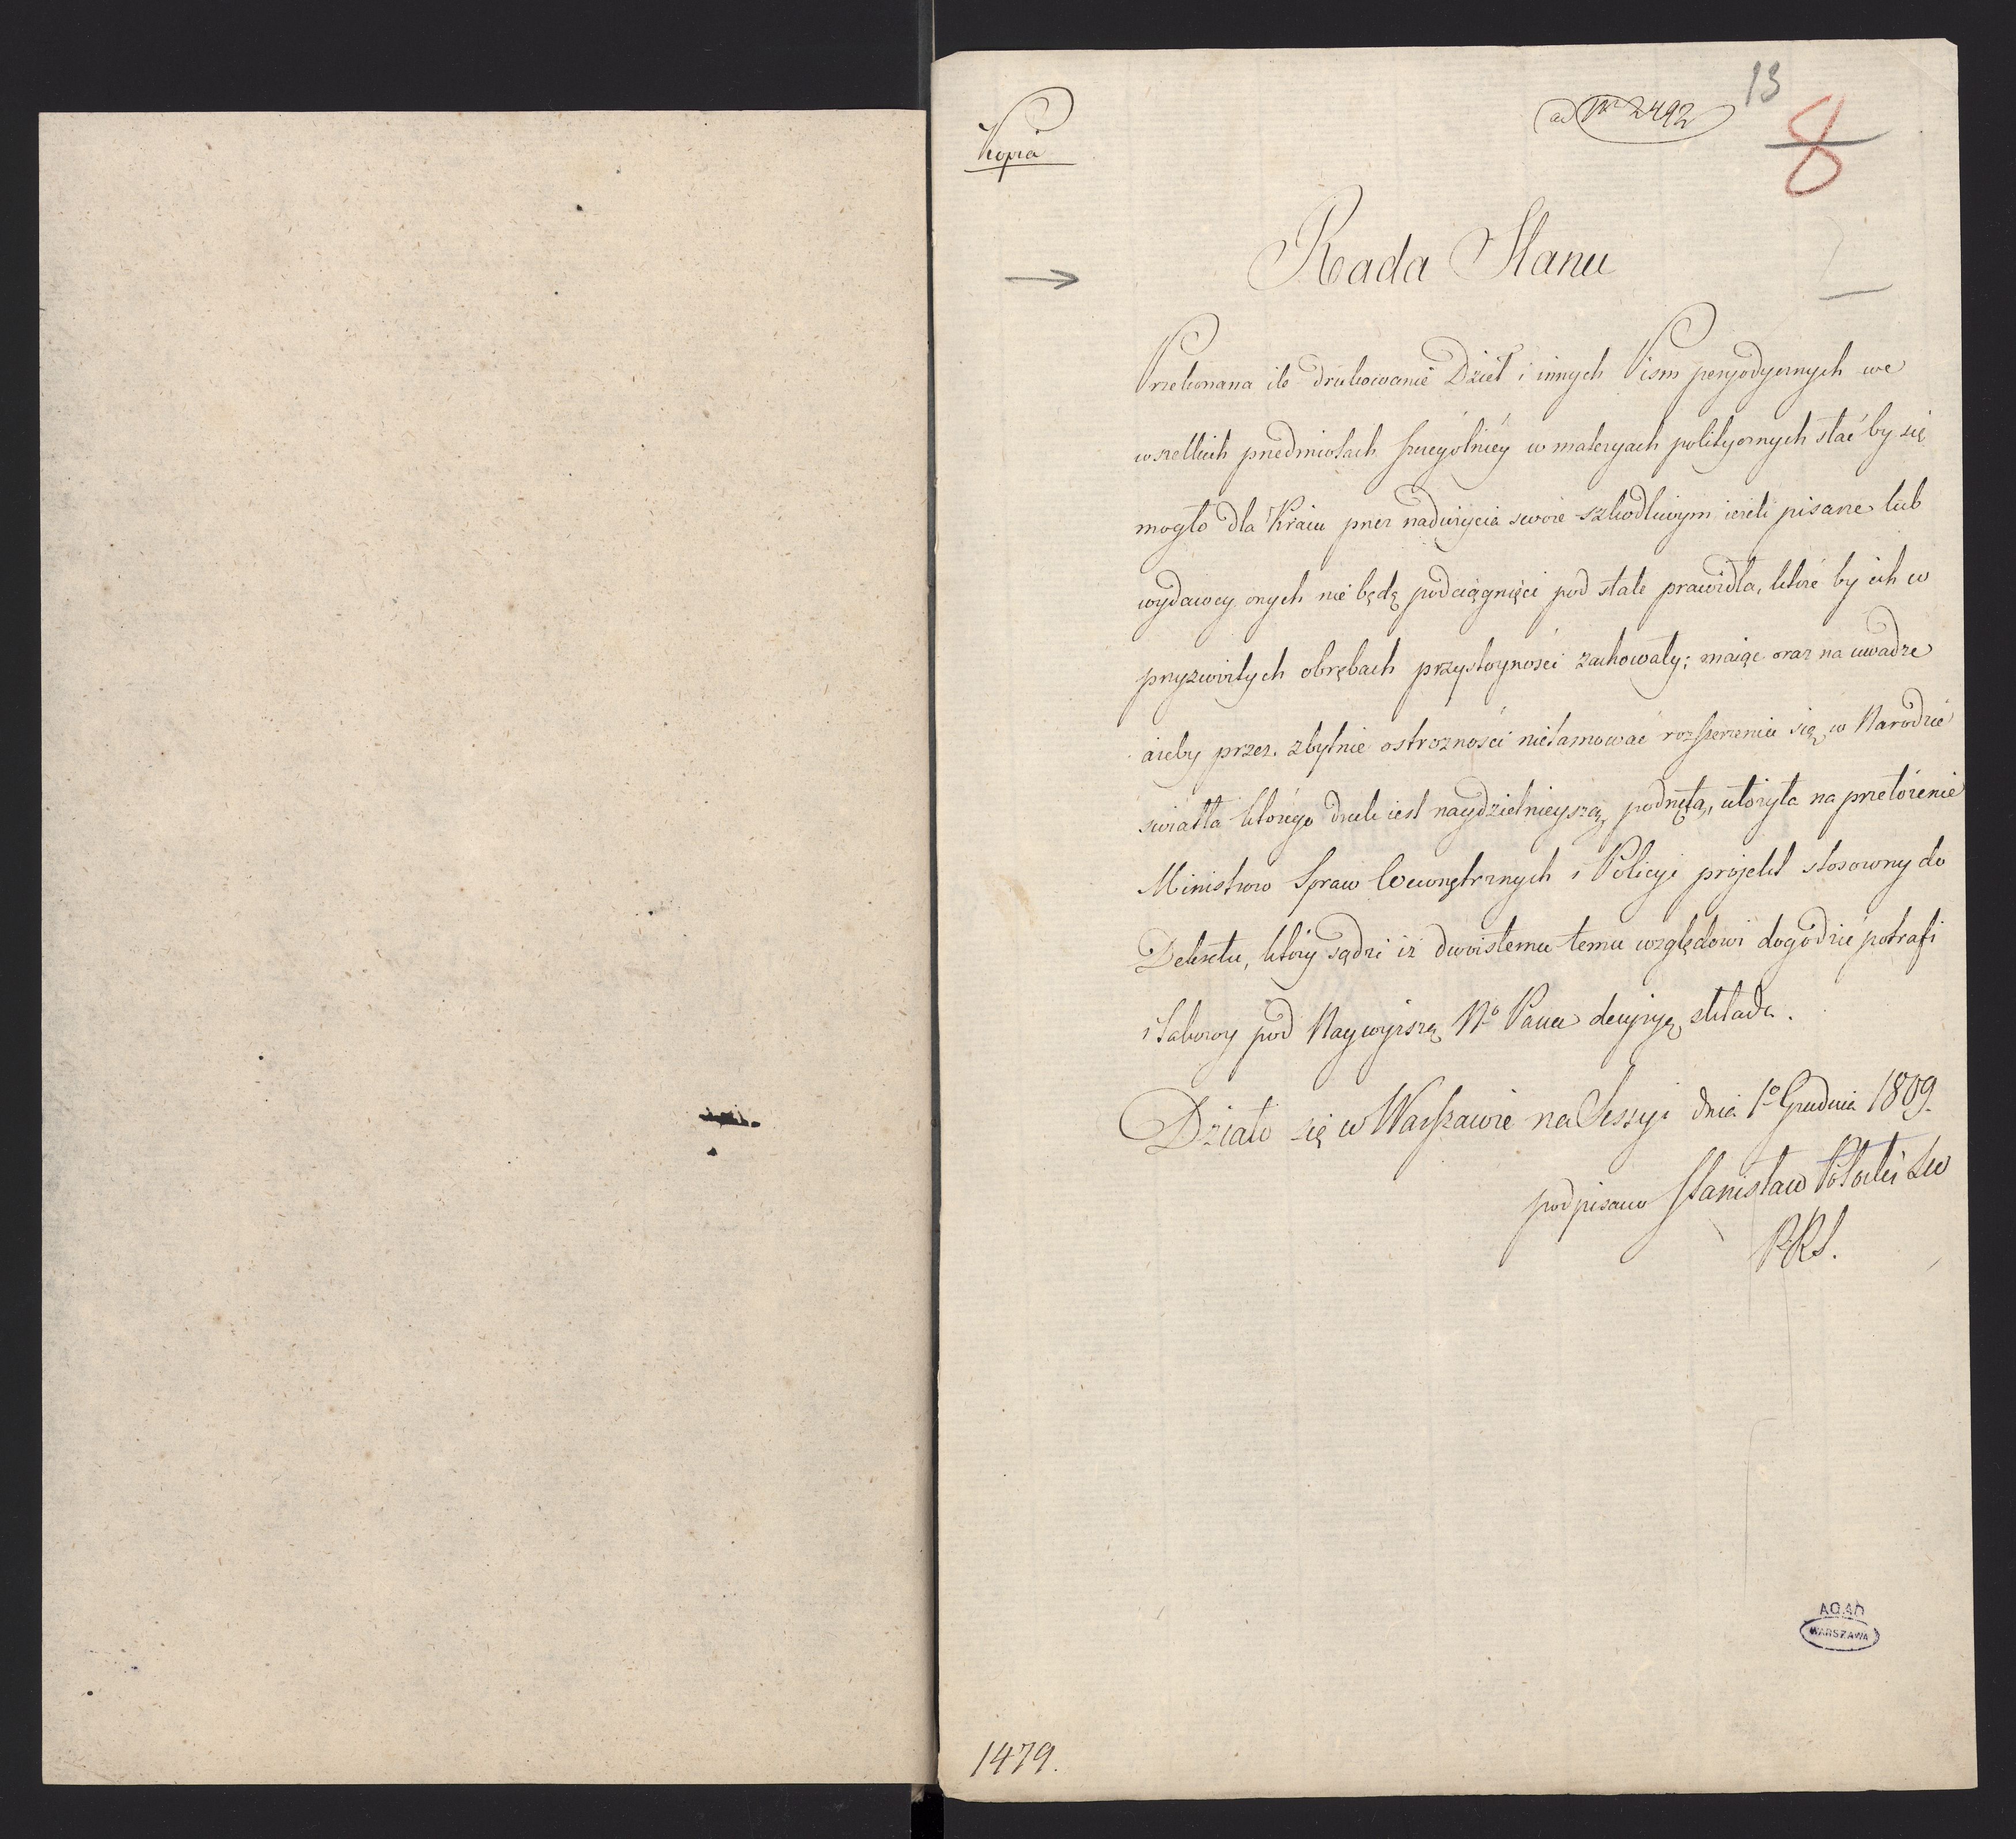 13
ad Nr 2492
8
Kopia
Rada Stanu
Przekonana ile drukowanie Dzieł i innych Pism peryodycznych we
wszelkich przedmiotach szczególniéy w materyach politycznych stać by się
mogło dla Kraiu przez nadużycia swoie szkodliwym ieżeli pisarze lub
wydawcy onych nie będą podciągnięci pod stałe prawidła, któré by ich w
przyzwoitych obrębach przystoyności zachowały; maiąc oraz na uwadze
ażeby przez zbytnie ostrożności nietamować rozszerzenia się w Narodzie
światła którego druk iest naydzielnieyszą podnętą, ułożyła na przełożenie
Ministrów Spraw Wewnętrznych i Policyi projekt stosowny do
Dekretu, który sądzi iż dwoistemu temu względowi dogodzić potrafi
i takowy pod Naywyższą No Pana decyzyą składa.
Działo się w Warszawie na Sessyi dnia 1o Grudnia 1809.
podpisano Stanisław Potocki
PRS.
AGAD
WARSZAWA
1479.